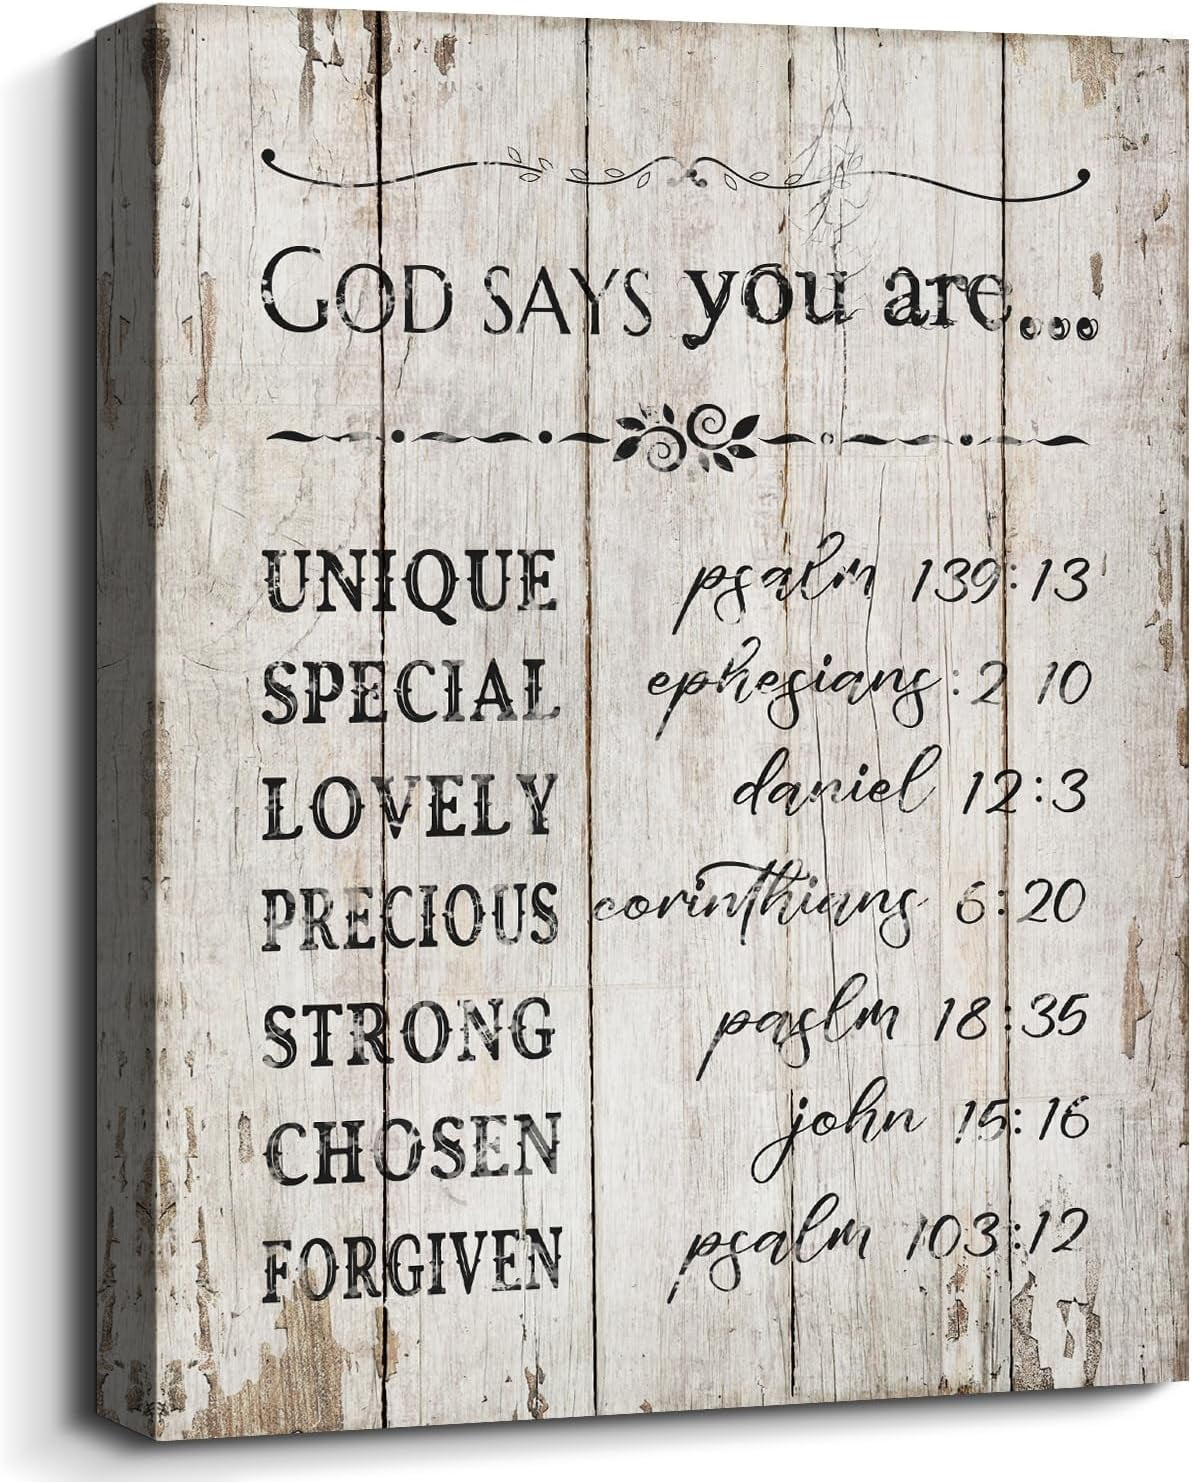 GOD SAYS you are...
UNIQUE psalm 139:13
SPECIAL ephesians:2 10
LOVELY daniel 12:3
PRECIOUS corinthians 6:20
STRONG paslm 18:35
CHOSEN john 15:16
FORGIVEN psalm 103:12